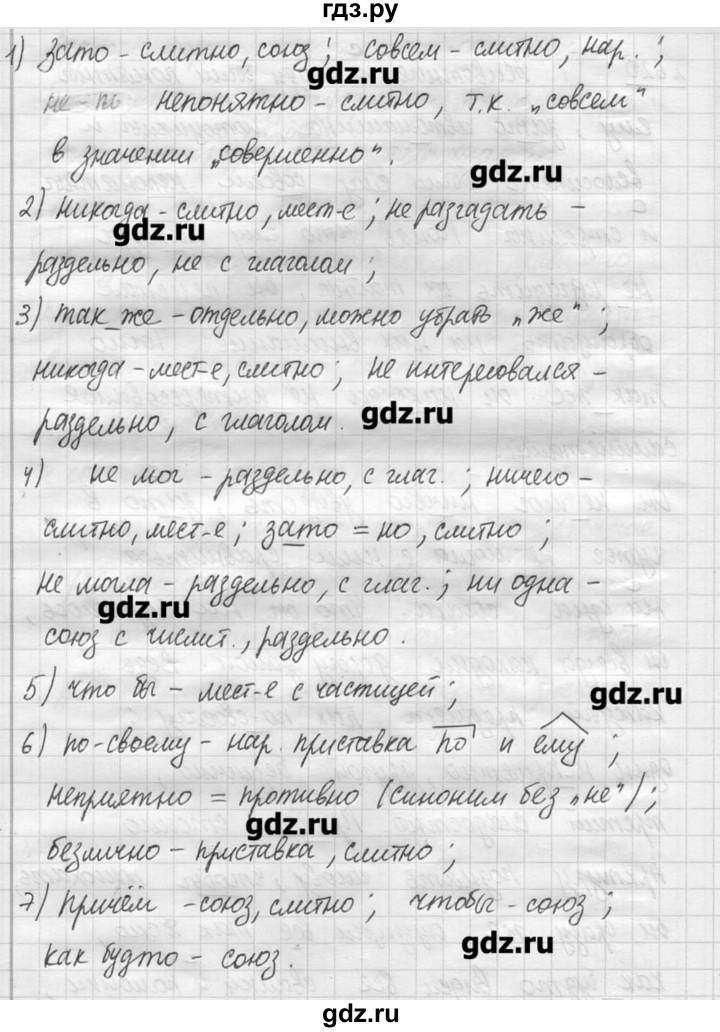 гдз.ру
1) зато - слитно, союз; совсем - слитно, нар.;
gdz.ru
не-по непонятно - слитно, т.к. „совсем"
в значении „совершенно".
gdz.ru
2) никогда - слитно, мест-е; не разгадать -
gdz.ru
раздельно, не с глаголом;
3) так же - отдельно, можно убрать „же";
никогда - мест-е, слитно; не интересовался -
gdz.ru
раздельно, с глаголом.
4) не мог - раздельно, с глаг.; ничего -
слитно, мест-е; зато = но, слитно;
не могла - раздельно, с глаг.; ни одна -
gdz.ru
союз с числит., раздельно.
5) что бы - мест-е с частицей;
gdz.ru
6) по-своему - нар. приставка по и ему;
неприятно = противно (синоним без „не");
gdz.ru
безлично - приставка, слитно;
7) Причём - союз, слитно; чтобы - союз;
как будто - союз.
gdz.ru
gdz.ru